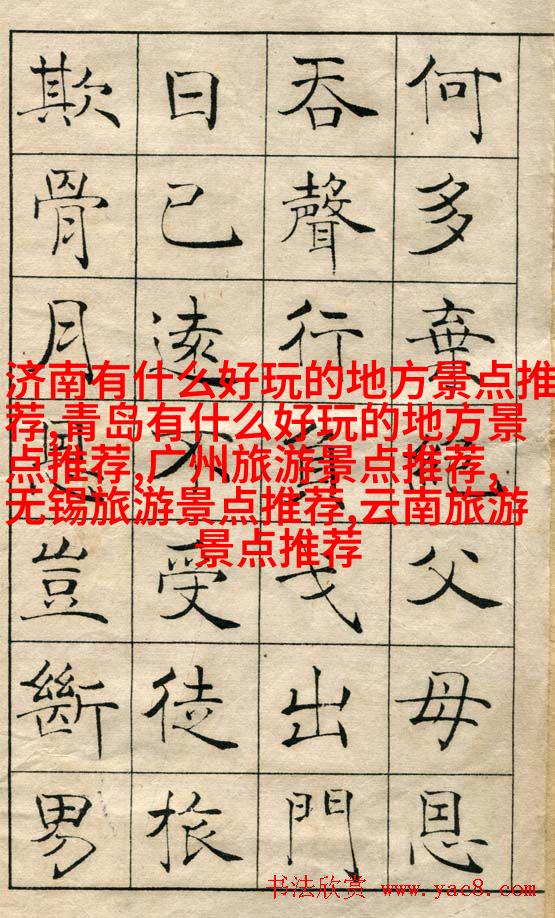 何多棄絕父母恩
吞聲行負戈出門
日已遠不受徒旅
欺骨月恩豈斷男
济南有什么好玩的地方景点推
荐,青岛有什么好玩的地方景
点推荐,广州旅游景点推荐,
无锡旅游景点推荐,云南旅游
景点推荐
书法欣赏 www.yac8.com